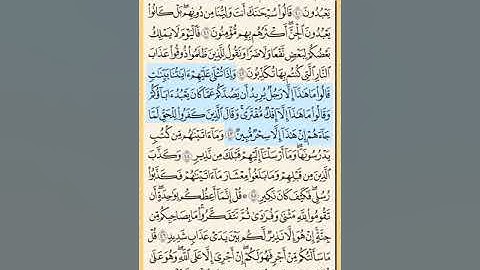 يَعْبُدُونَ ۝ قَالُوا۟ سُبْحَـٰنَكَ أَنتَ وَلِيُّنَا مِن دُونِهِم ۖ بَلْ كَانُوا۟
يَعْبُدُونَ ٱلْجِنَّ ۖ أَكْثَرُهُم بِهِم مُّؤْمِنُونَ ۝ فَٱلْيَوْمَ لَا يَمْلِكُ
بَعْضُكُمْ لِبَعْضٍ نَّفْعًا وَلَا ضَرًّا وَنَقُولُ لِلَّذِينَ ظَلَمُوا۟ ذُوقُوا۟ عَذَابَ
ٱلنَّارِ ٱلَّتِى كُنتُم بِهَا تُكَذِّبُونَ ۝ وَإِذَا تُتْلَىٰ عَلَيْهِمْ ءَايَـٰتُنَا بَيِّنَـٰتٍ
قَالُوا۟ مَا هَـٰذَآ إِلَّا رَجُلٌ يُرِيدُ أَن يَصُدَّكُمْ عَمَّا كَانَ يَعْبُدُ ءَابَآؤُكُمْ
وَقَالُوا۟ مَا هَـٰذَآ إِلَّآ إِفْكٌ مُّفْتَرًى ۚ وَقَالَ ٱلَّذِينَ كَفَرُوا۟ لِلْحَقِّ لَمَّا
جَآءَهُمْ إِنْ هَـٰذَآ إِلَّا سِحْرٌ مُّبِينٌ ۝ وَمَآ ءَاتَيْنَـٰهُم مِّن كُتُبٍ
يَدْرُسُونَهَا ۖ وَمَآ أَرْسَلْنَآ إِلَيْهِمْ قَبْلَكَ مِن نَّذِيرٍ ۝ وَكَذَّبَ
ٱلَّذِينَ مِن قَبْلِهِمْ وَمَا بَلَغُوا۟ مِعْشَارَ مَآ ءَاتَيْنَـٰهُمْ فَكَذَّبُوا۟
رُسُلِى ۖ فَكَيْفَ كَانَ نَكِيرِ ۝ قُلْ إِنَّمَآ أَعِظُكُم بِوَٰحِدَةٍ ۖ أَن
تَقُومُوا۟ لِلَّهِ مَثْنَىٰ وَفُرَٰدَىٰ ثُمَّ تَتَفَكَّرُوا۟ ۚ مَا بِصَاحِبِكُم مِّن
جِنَّةٍ ۚ إِنْ هُوَ إِلَّا نَذِيرٌ لَّكُم بَيْنَ يَدَىْ عَذَابٍ شَدِيدٍ ۝ قُلْ
مَا سَأَلْتُكُم مِّنْ أَجْرٍ فَهُوَ لَكُمْ ۖ إِنْ أَجْرِىَ إِلَّا عَلَى ٱللَّهِ ۖ وَهُوَ عَلَىٰ